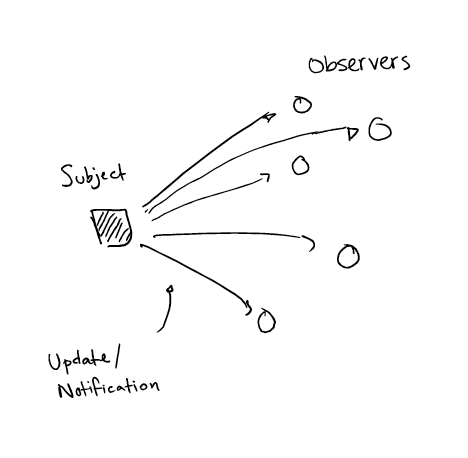 Observers
Subject
Update/
Notification